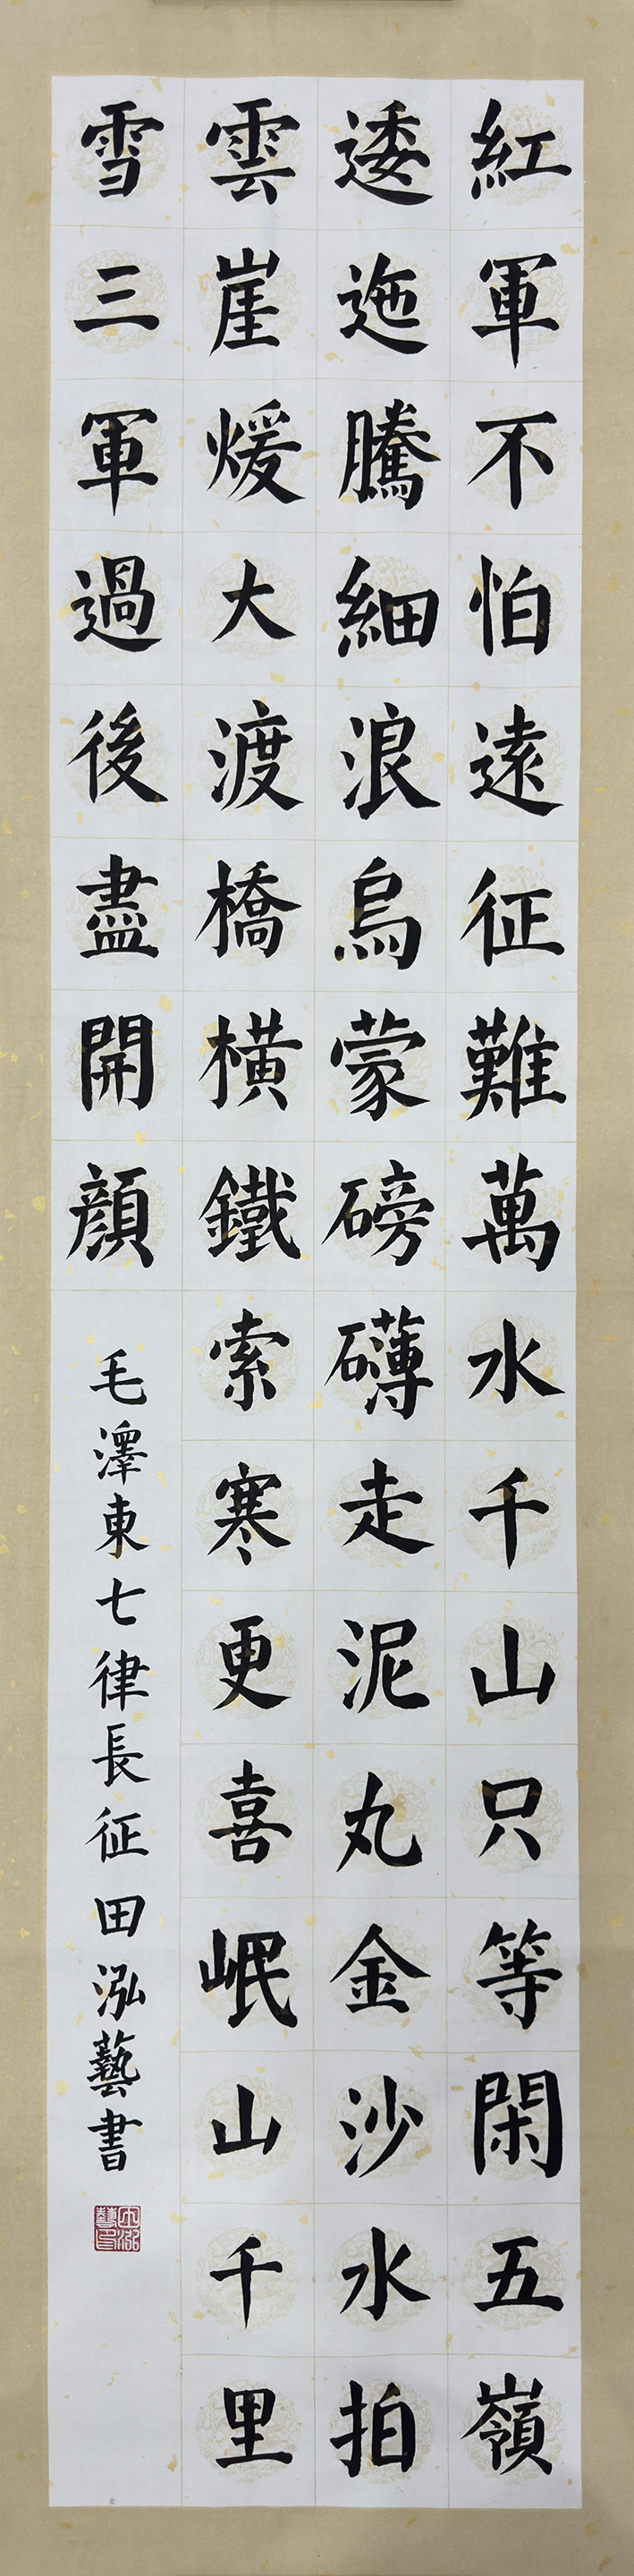 紅軍不怕遠征難萬水千山只等閑五嶺
逶迤騰細浪烏蒙磅礴走泥丸金沙水拍
雲崖煖大渡橋橫鐵索寒更喜岷山千里
雪三軍過後盡開顔
毛澤東七律長征田泓藝書
田泓藝印